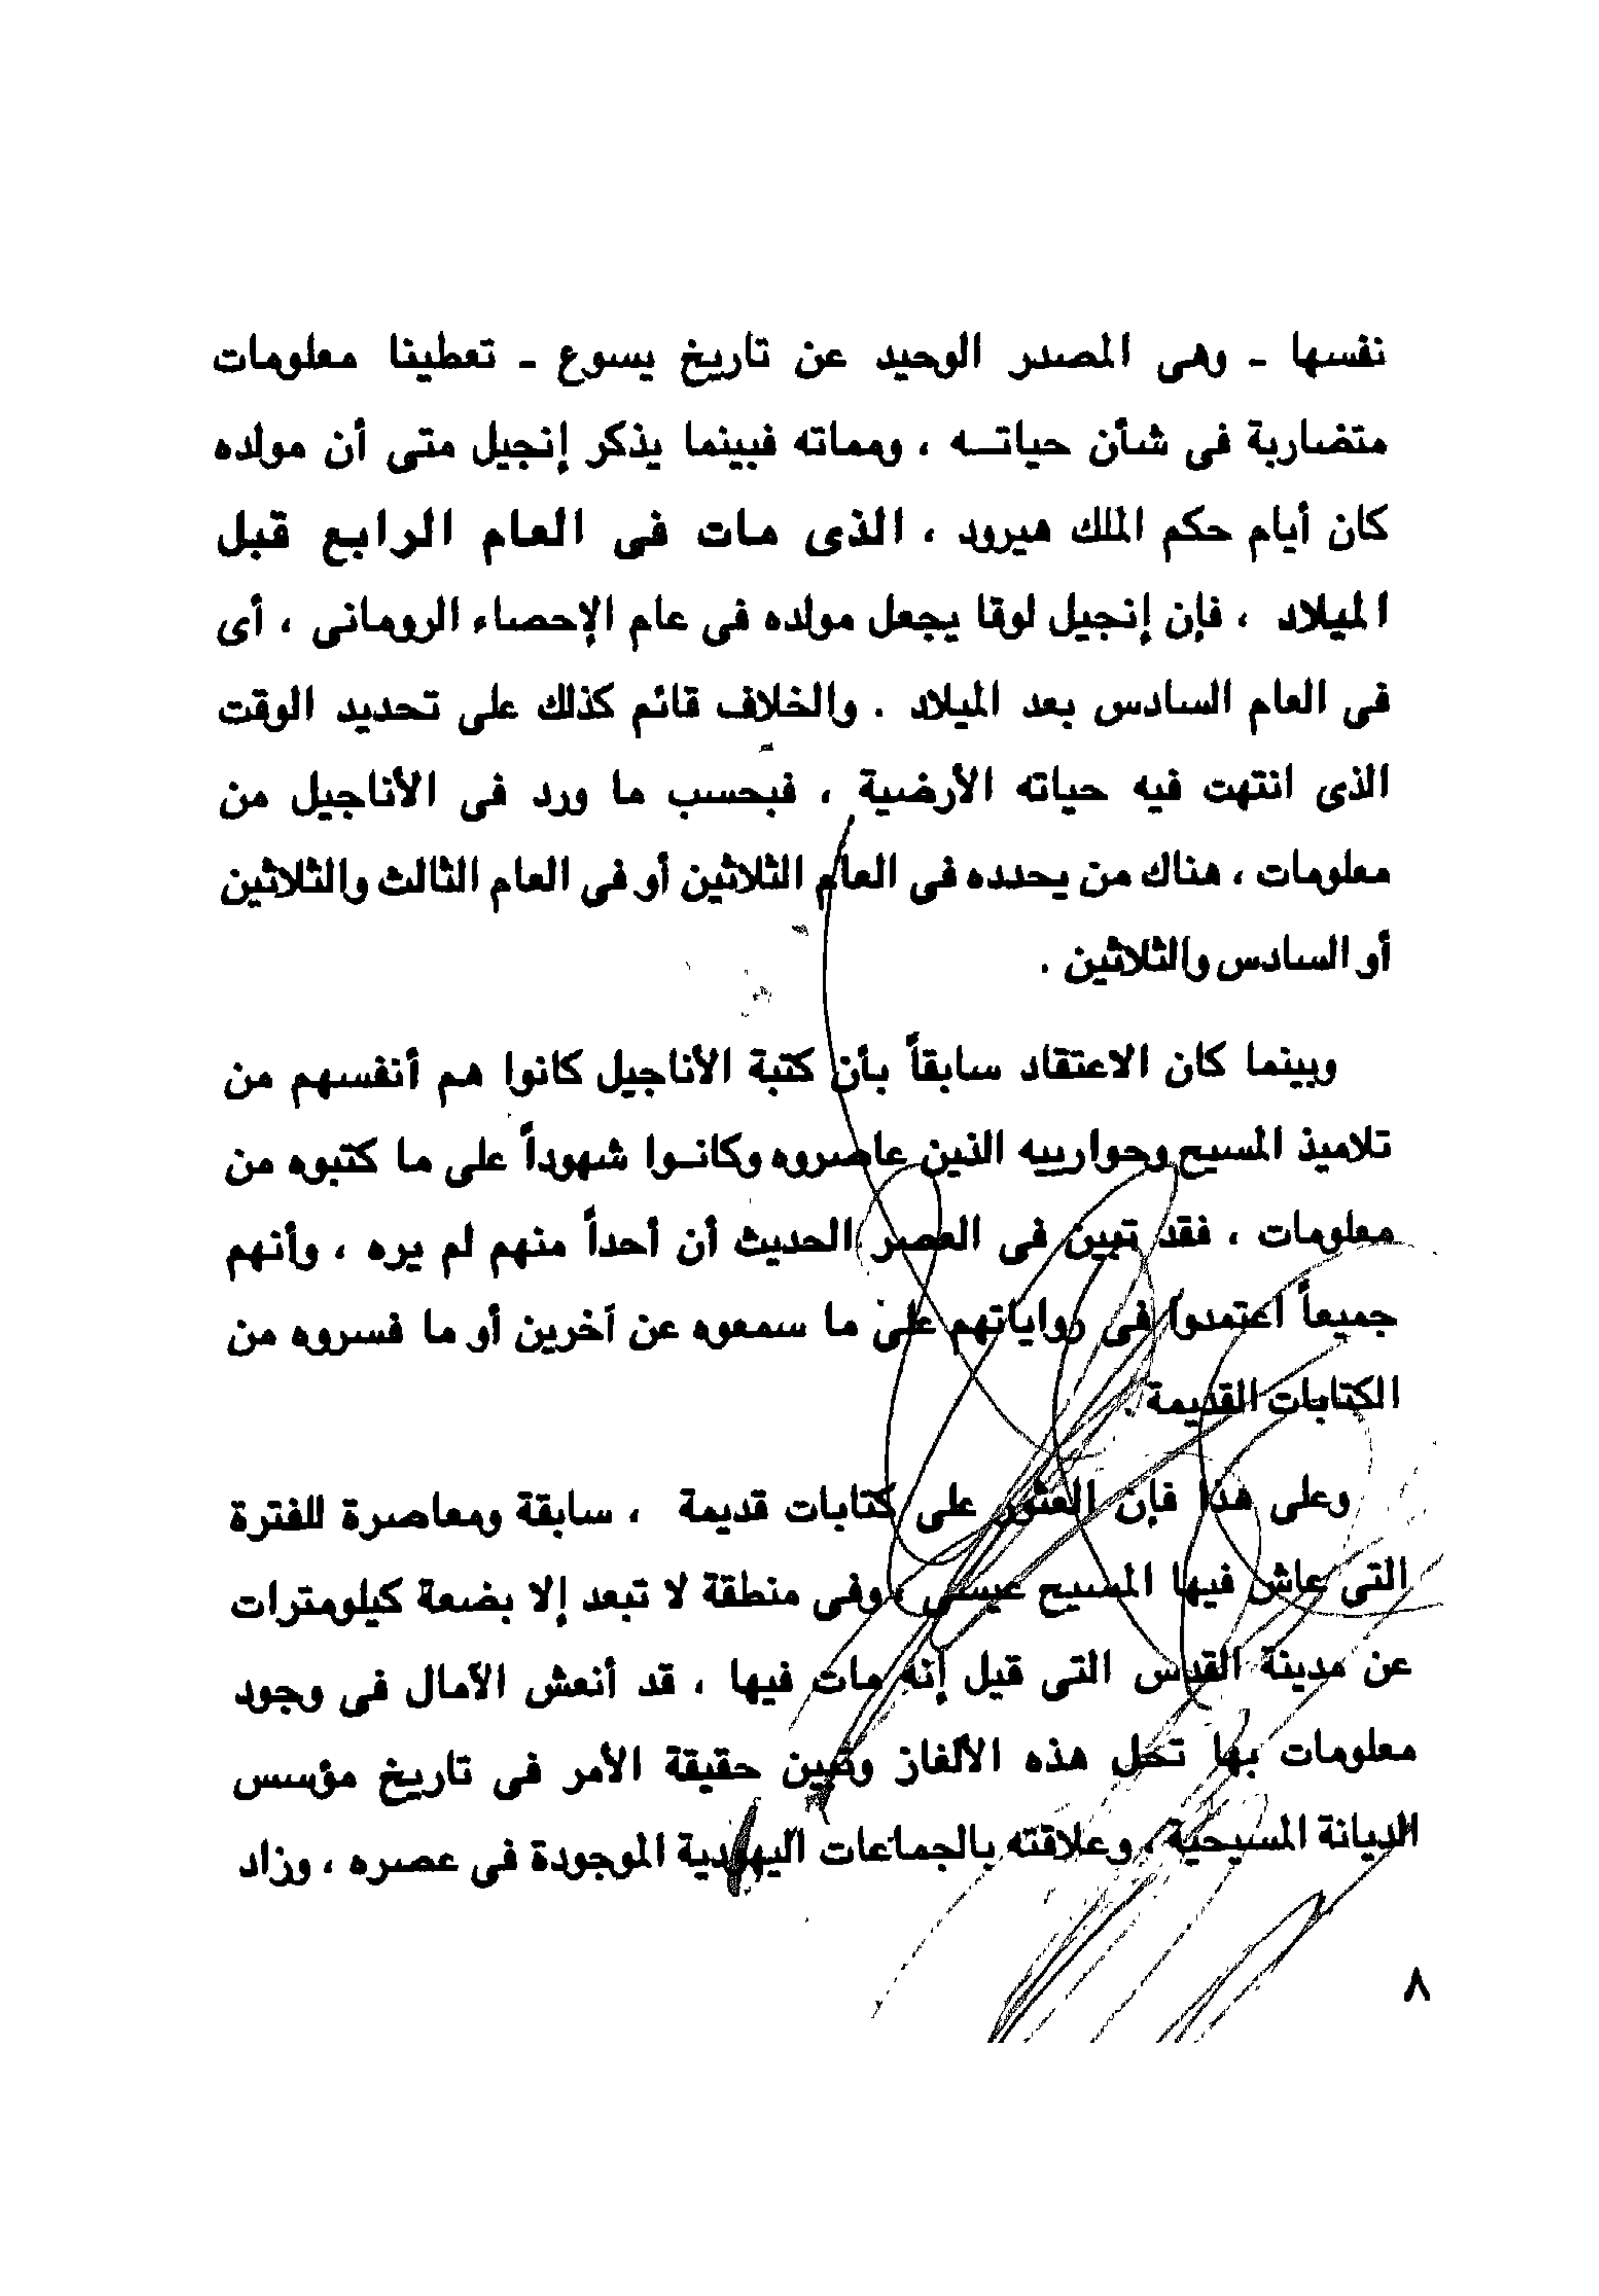 نفسها ـ وهى المصدر الوحيد عن تاريخ يسوع ـ تعطينا معلومات
متضاربة فى شأن حياتـه ، ومماته فبينما يذكر إنجيل متى أن مولده
كان أيام حكم الملك هيرود ، الذى مات فى العام الرابع قبل
الميلاد ، فإن إنجيل لوقا يجعل مولده فى عام الإحصاء الرومانى ، أى
فى العام السادس بعد الميلاد . والخلاف قائم كذلك على تحديد الوقت
الذى انتهت فيه حياته الأرضية ، فبحسب ما ورد فى الأناجيل من
معلومات ، هناك من يحدده فى العام الثلاثين أو فى العام الثالث والثلاثين
أو السادس والثلاثين .
وبينما كان الاعتقاد سابقاً بأن كتبة الأناجيل كانوا هم أنفسهم من
تلاميذ المسيح وحوارييه الذين عاصروه وكانـوا شهوداً على ما كتبوه من
معلومات ، فقد تبين فى العصر الحديث أن أحداً منهم لم يره ، وأنهم
جميعاً اعتمدوا فى رواياتهم على ما سمعوه عن آخرين أو ما فسروه من
الكتابات القديمة .
وعلى هذا فإن العثور على كتابات قديمة ، سابقة ومعاصرة للفترة
التى عاش فيها المسيح عيسى ، وفى منطقة لا تبعد إلا بضعة كيلومترات
عن مدينة القدس التى قيل إنه مات فيها ، قد أنعش الآمال فى وجود
معلومات بها تحل هذه الألغاز وتبين حقيقة الأمر فى تاريخ مؤسس
الديانة المسيحية ، وعلاقته بالجماعات اليهودية الموجودة فى عصره ، وزاد
٨